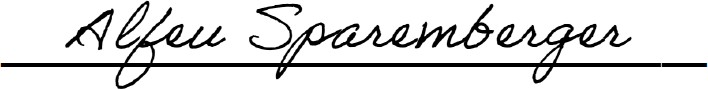 Alfeu Sparemberger